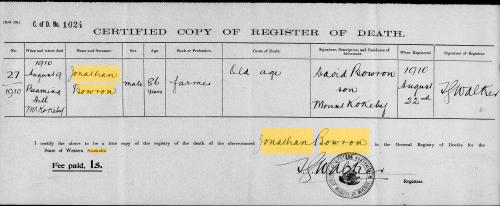 C. of D. No. 1024
CERTIFIED COPY OF REGISTER OF DEATH.
No. When and where died. Name and Surname. Sex. Age. Rank or Profession. Cause of Death. Signature, Description and Residence of Informant. When Registered. Signature of Registrar.
27
1910
1910
August 9
Hill
Mt Kokeby
Jonathan
Bowron
male
86
Years
farmer
Old age
David Bowron
son
Mount Kokeby
1910
August
22nd
Walker
I certify the above to be a true copy of the registry of the death of the abovenamed Jonathan Bowron in the General Registry of Deaths for the
State of Western Australia.
Fee paid, 1s.
Walker
Registrar.